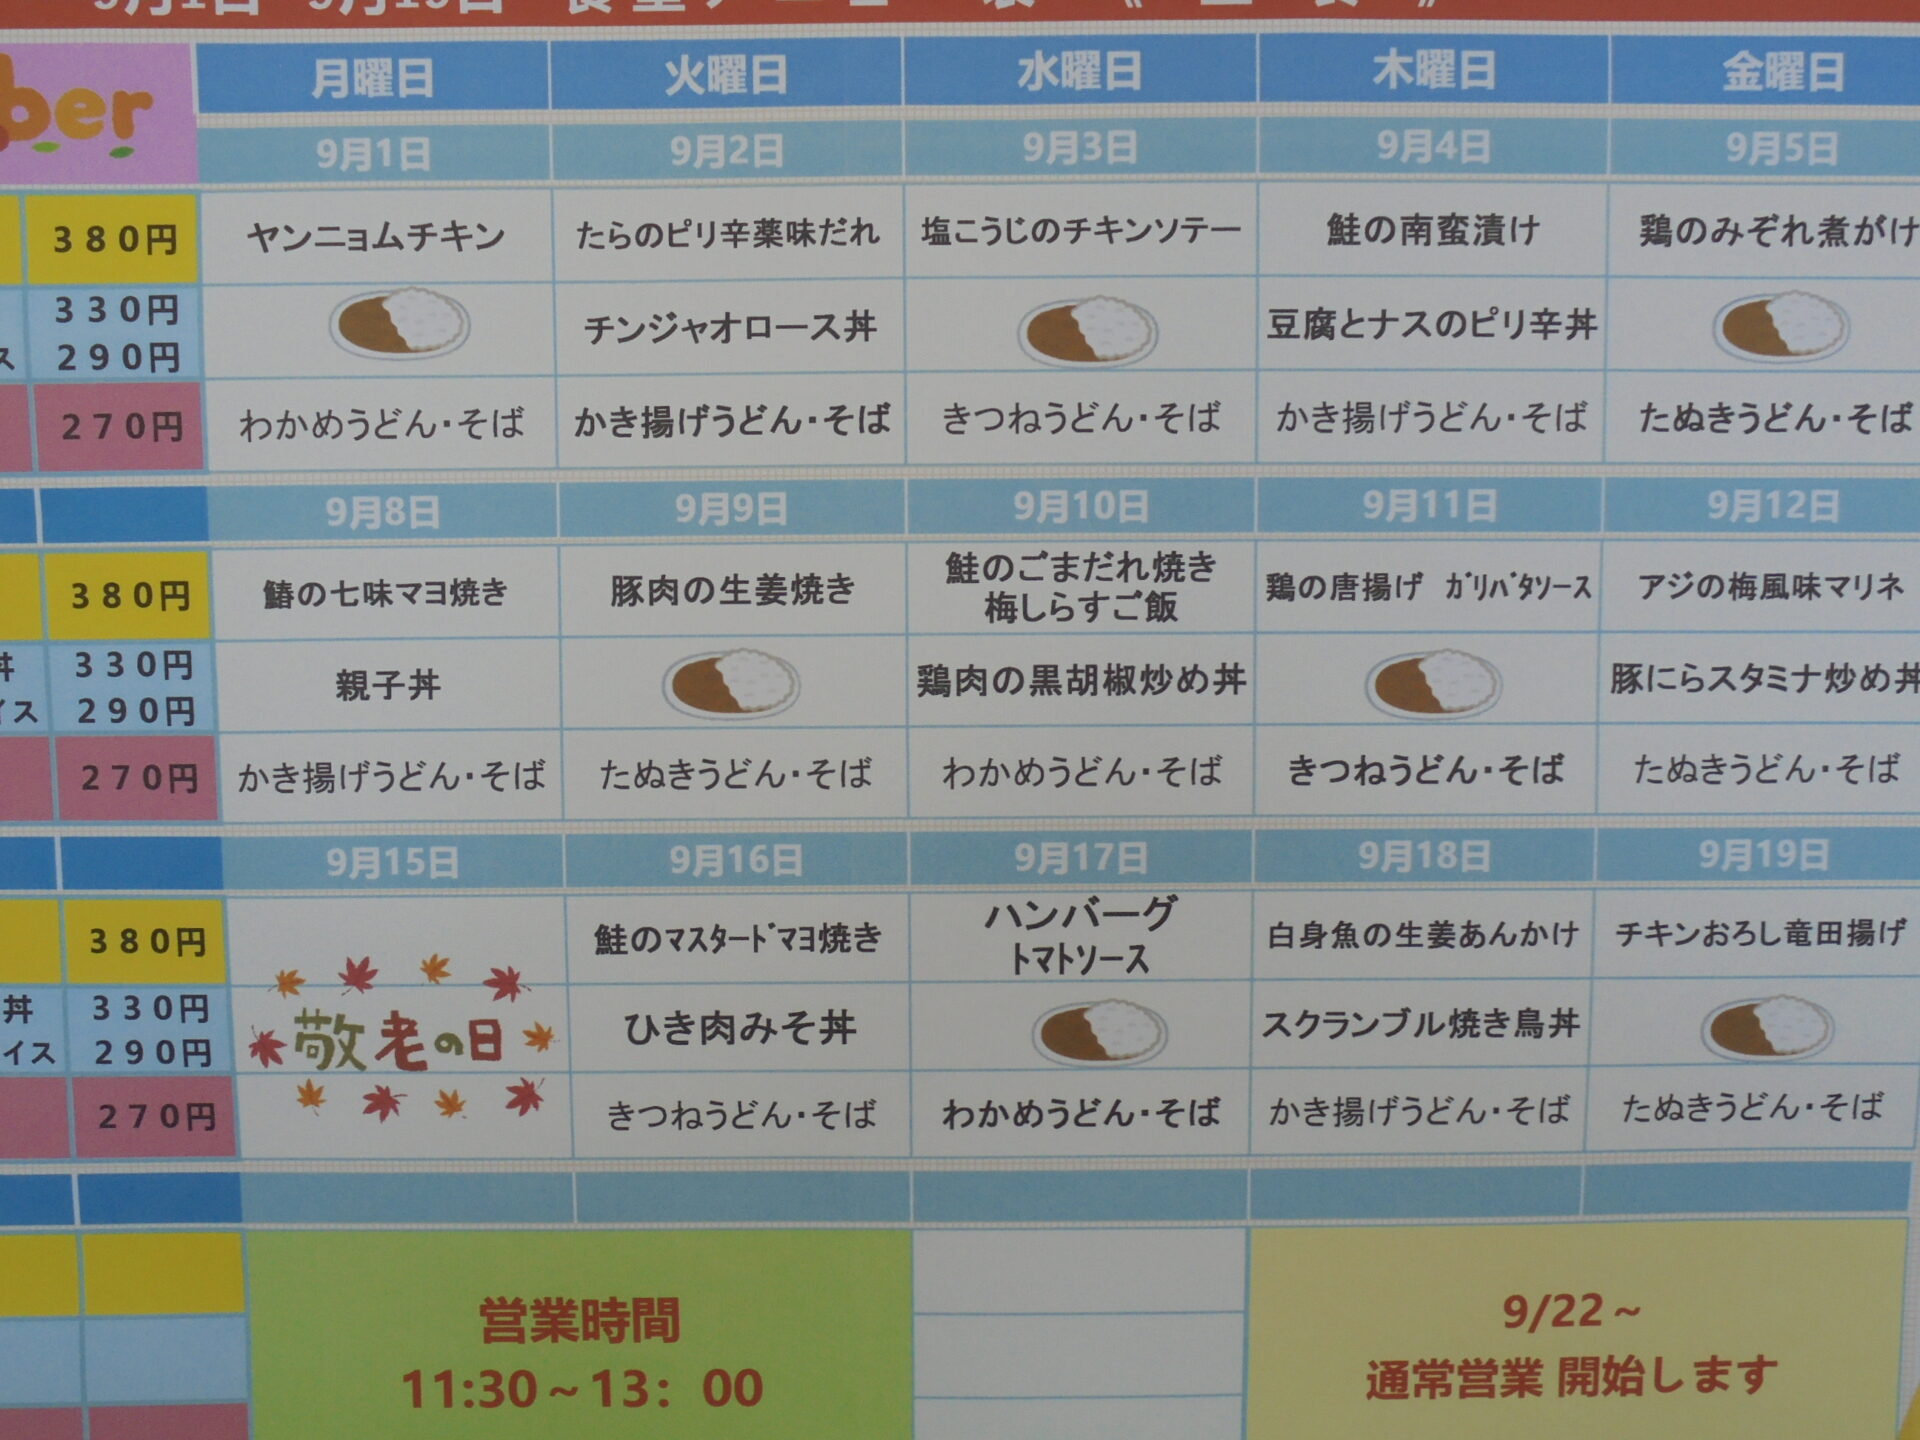 ber
月曜日 火曜日 水曜日 木曜日 金曜日
9月1日 9月2日 9月3日 9月4日 9月5日
380円 ヤンニョムチキン たらのピリ辛薬味だれ 塩こうじのチキンソテー 鮭の南蛮漬け 鶏のみぞれ煮がけ
330円 チンジャオロース丼 豆腐とナスのピリ辛丼
ス 290円
270円 わかめうどん・そば かき揚げうどん・そば きつねうどん・そば かき揚げうどん・そば たぬきうどん・そば
9月8日 9月9日 9月10日 9月11日 9月12日
380円 鰆の七味マヨ焼き 豚肉の生姜焼き 鮭のごまだれ焼き 鶏の唐揚げ ガリバタソース アジの梅風味マリネ
梅しらすご飯
丼 330円 親子丼 鶏肉の黒胡椒炒め丼 豚にらスタミナ炒め丼
イス 290円
270円 かき揚げうどん・そば たぬきうどん・そば わかめうどん・そば きつねうどん・そば たぬきうどん・そば
9月15日 9月16日 9月17日 9月18日 9月19日
380円 鮭のマスタードマヨ焼き ハンバーグ 白身魚の生姜あんかけ チキンおろし竜田揚げ
トマトソース
丼 330円 敬老の日 ひき肉みそ丼 スクランブル焼き鳥丼
イス 290円
270円 きつねうどん・そば わかめうどん・そば かき揚げうどん・そば たぬきうどん・そば
営業時間
11:30～13：00
9/22～
通常営業 開始します